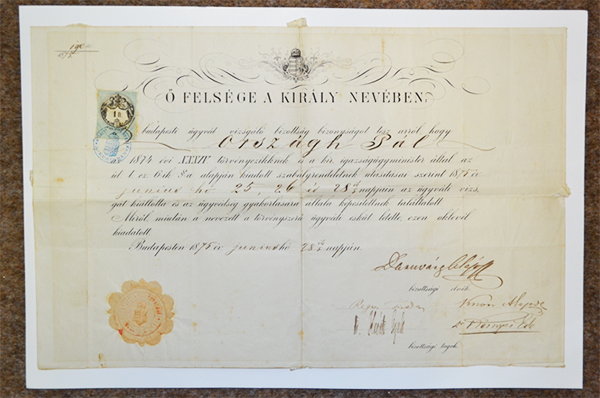 1875
Ő FELSÉGE A KIRÁLY NEVÉBEN.
1 ft
A budapesti ügyvéd vizsgáló bizottság bizonyságot tesz arról hogy
Országh Pál
az 1874 évi XXXIV törvényczikknek és a kir. igazságügyminister által az
id. t. cz. 6 ik §a alapján kiadott szabályrendeletnek utasításai szerint 1875 év
junius hó 25, 26 és 28 napjain az ügyvédi vizs
gát kiállotta és az ügyvédség gyakorlására általa képesítettnek találtatott
Miről miután a nevezett a törvényszerű ügyvédi esküt letette ezen oklevél
kiadatott.
Budapesten 1875 év junius hó 28 napján.
bizottsági elnök
bizottsági tagok.